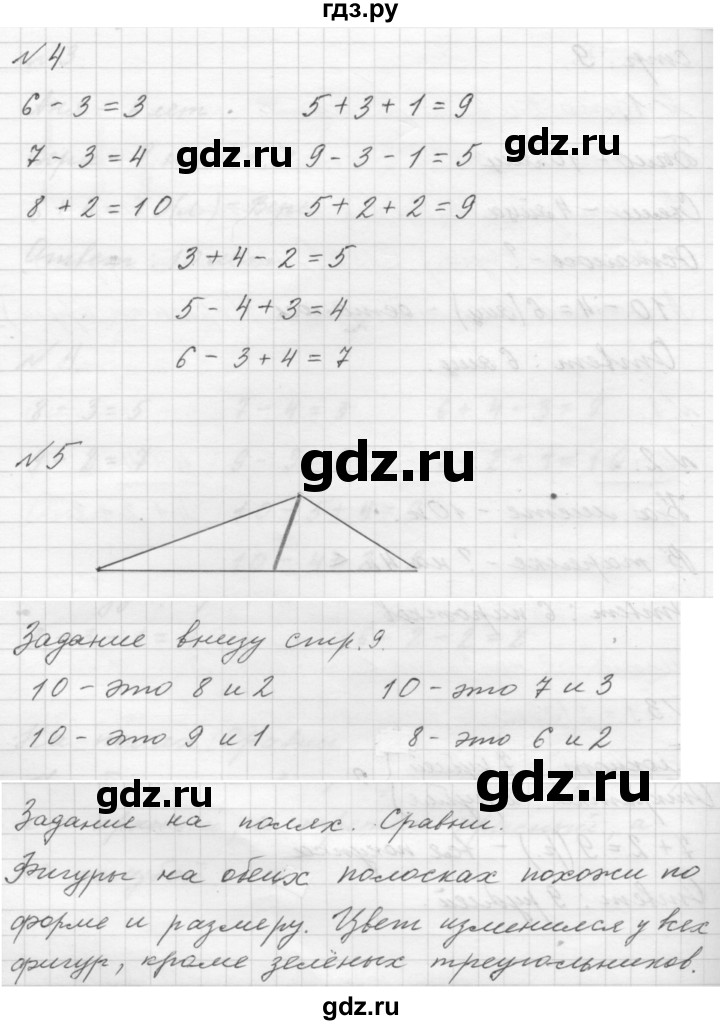 гдз.ру
№ 4
6 - 3 = 3 5 + 3 + 1 = 9
7 - 3 = 4 9 - 3 - 1 = 5
8 + 2 = 10 5 + 2 + 2 = 9
3 + 4 - 2 = 5
5 - 4 + 3 = 4
6 - 3 + 4 = 7
gdz.ru
gdz.ru
№ 5
gdz.ru
Задание внизу стр. 9.
10 - это 8 и 2 10 - это 7 и 3
10 - это 9 и 1 8 - это 6 и 2
gdz.ru
gdz.ru
Задание на полях. Сравни.
Фигуры на обеих полосках похожи по
форме и размеру. Цвет изменился у всех
фигур, кроме зелёных треугольников.
gdz.ru